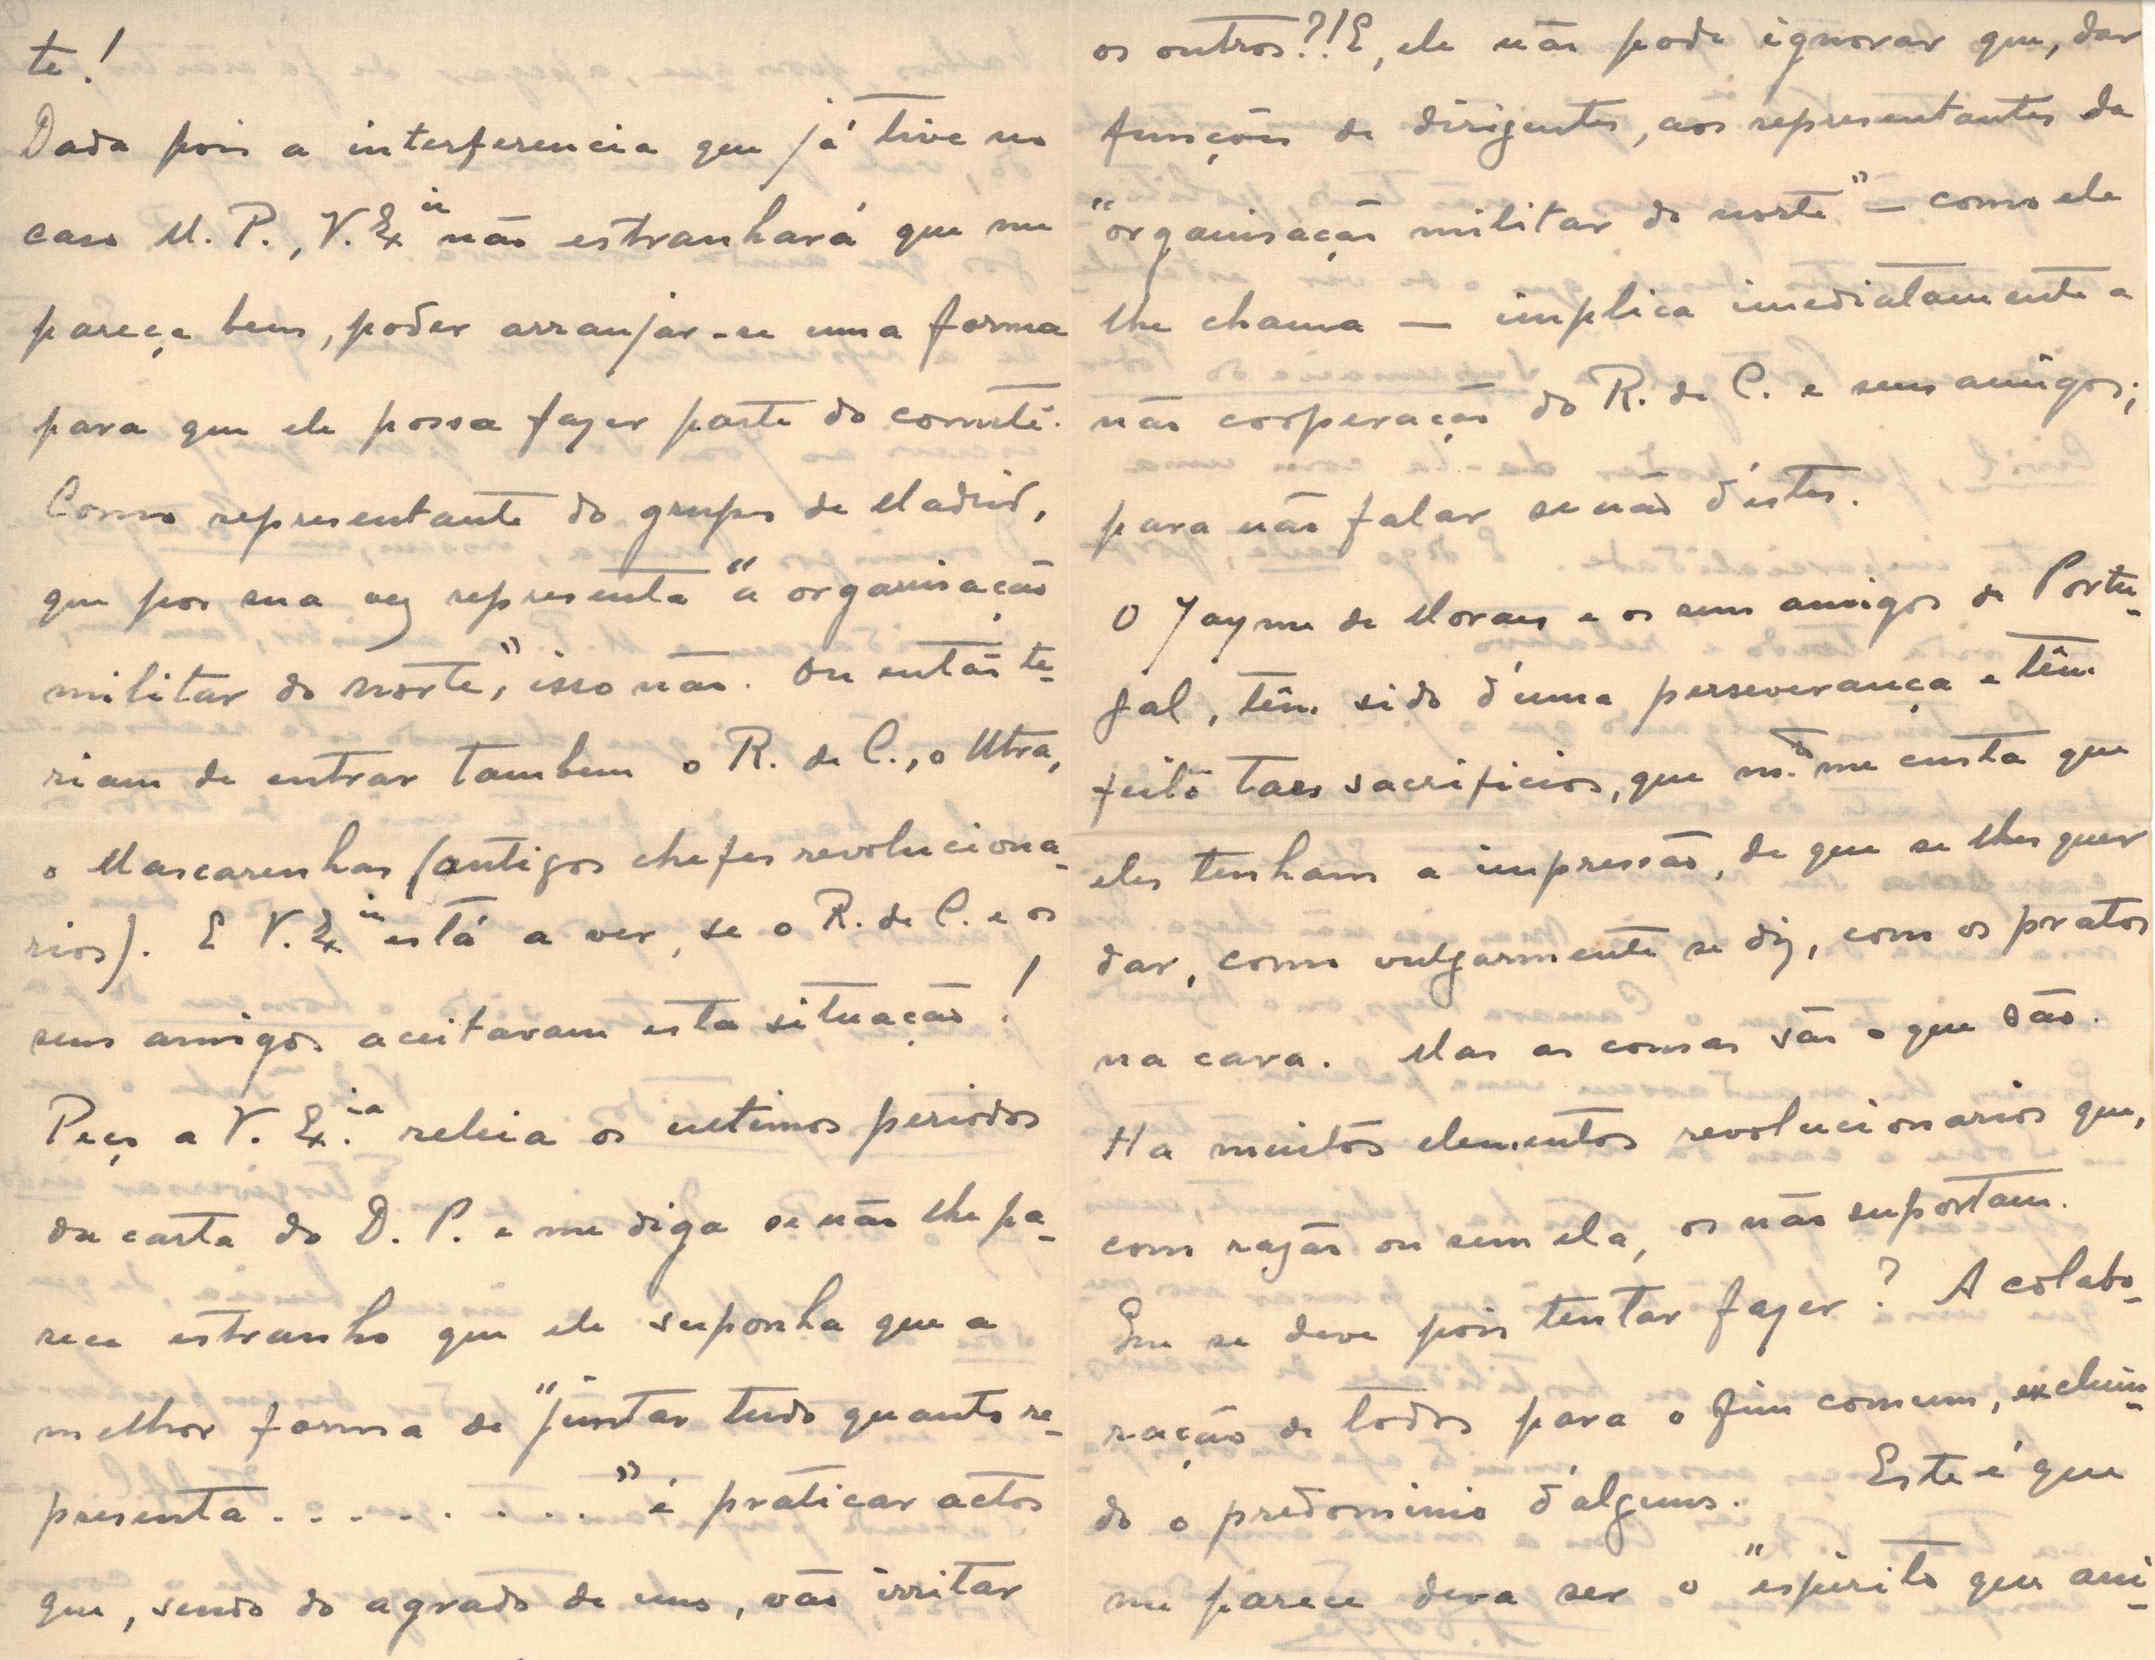 te!
Dada pois a interferencia que já tive no
caso M. P., V. Ex.ia não estranhará que me
pareça bem, poder arranjar-se uma forma
para que ele possa fazer parte do comité.
Como representante do grupo de Madrid,
que por sua vez representa "a organisação
militar do norte", isso não. Ou então te-
riam de entrar tambem o R. de C., o Utra,
o Mascarenhas (antigos chefes revoluciona-
rios). E V. Ex.ia está a ver, se o R. de C. e os
seus amigos aceitavam esta situação!
Peço a V. Ex.ia releia os ultimos periodos
da carta do D. P. e me diga se não lhe pa-
rece estranho que ele suponha que a
melhor forma de "juntar tudo quanto re-
presenta . . . . . . . . ." é praticar actos
que, sendo do agrado de uns, vão irritar
os outros?! E, ele não pode ignorar que, dar
funções de dirigentes, aos representantes da
"organisação militar do norte" — como ele
lhe chama — implica imediatamente a
não cooperação do R. de C. e seus amigos;
para não falar senão d'estes.
O Jayme de Moraes e os seus amigos de Portu-
gal, têm sido d'uma perseverança e têm
feito taes sacrificios, que m.to me custa que
eles tenham a impressão, de que se lhes quer
dar, como vulgarmente se diz, com os pratos
na cara. Mas as cousas são o que são.
Ha muitos elementos revolucionarios que,
com razão ou sem ela, os não suportam.
Que se deve pois tentar fazer? A colabo-
ração de todos para o fim comum, excluin-
do o predominio d'alguns. Este é que
me parece deva ser o "espirito que ani-